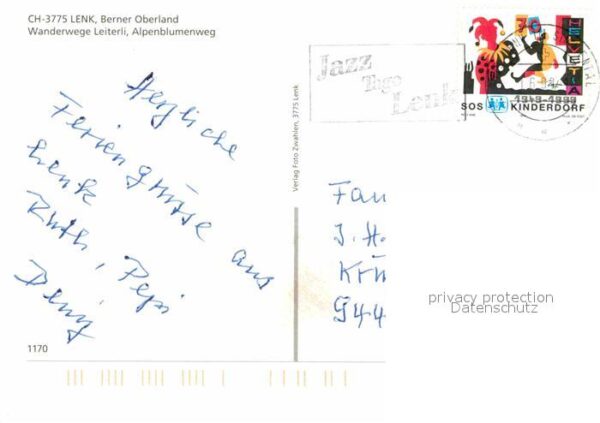 CH-3775 LENK, Berner Oberland
Wanderwege Leiterli, Alpenblumenweg
Jazz
Tage
Lenk
70
HELVETIA
1949-1999
SOS KINDERDORF
Verlag Foto Zwahlen, 3775 Lenk
Herzliche
Feriengrüsse aus
Lenk
Ruth, Pepi
Fam
J. H.
944
privacy protection
Datenschutz
1170